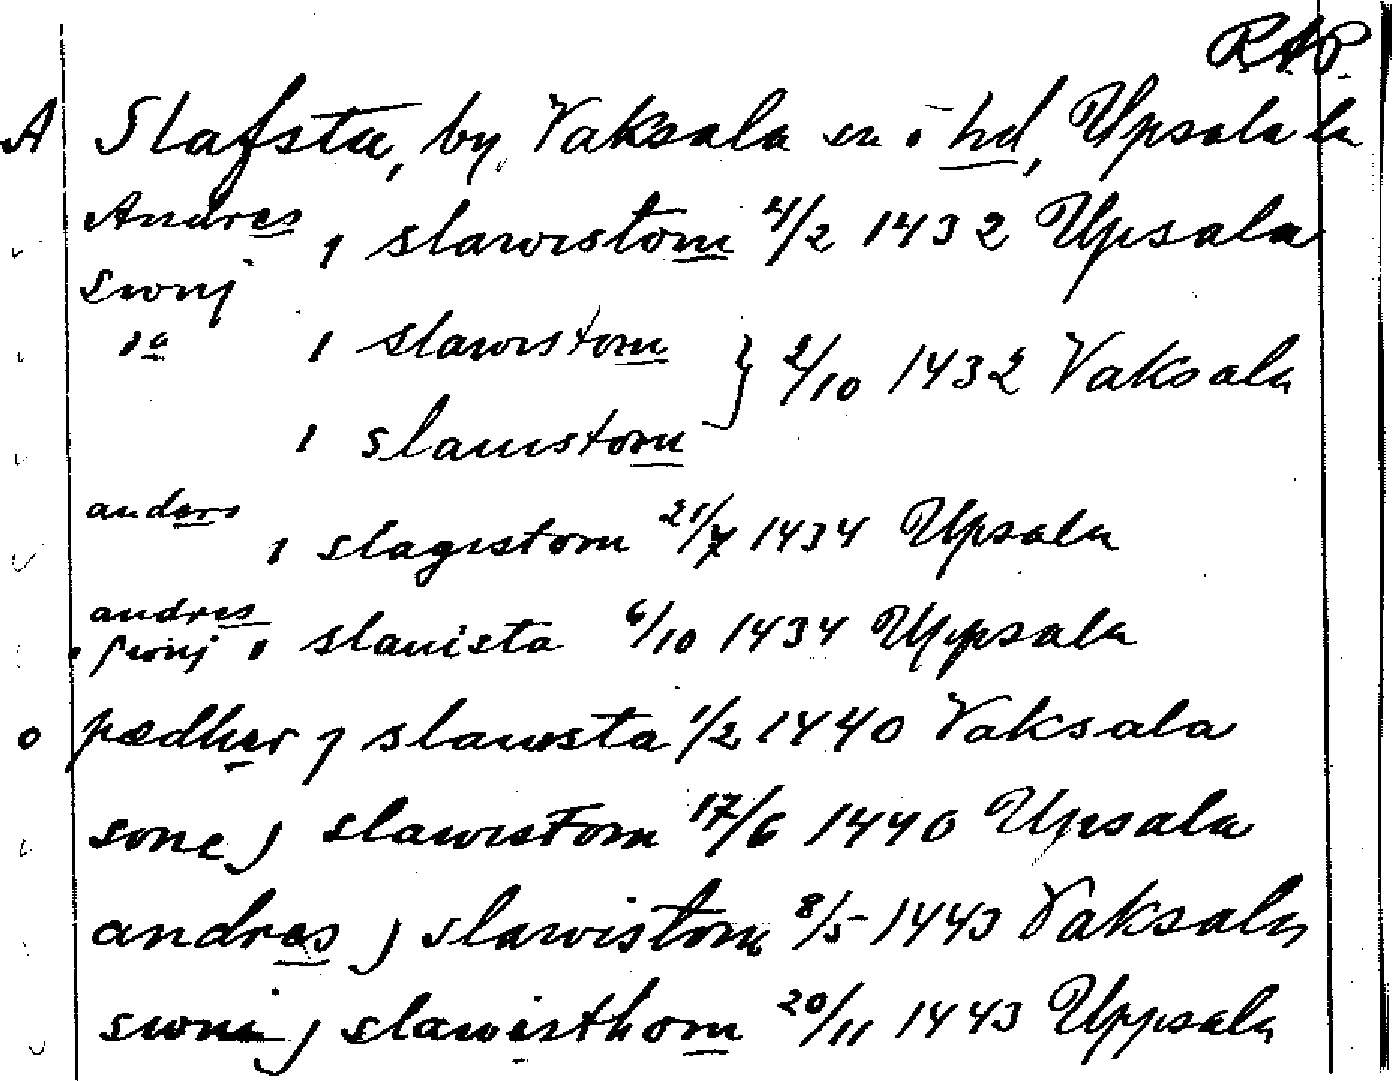 RAP.
A Slafsta, by, Vaksala sn o hd, Upsala la
Andres j slawistom 4/2 1432 Upsala
swnj
ia i slawistom } 2/10 1432 Vaksala
i slawistom
anders i slagistom 21/7 1434 Upsala
andres
swnj i slauista 6/10 1434 Uppsala
pædher j slawsta 1/2 1440 Vaksala
sone j slawistom 17/6 1440 Upsala
andres j slawistom 8/5 1443 Vaksala
swni j slawisthom 20/11 1443 Uppsala